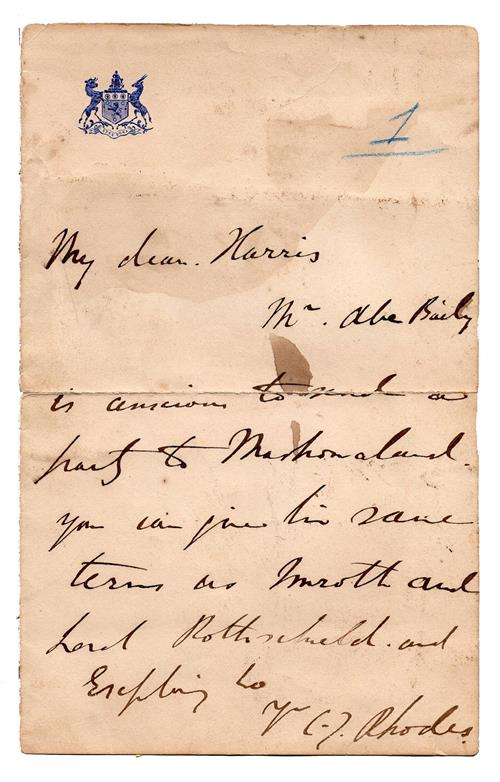 1
My dear Harris
Mr. Abe Baily
is anxious to send a
party to Mashonaland.
you can give him same
terms as and
Lord Rothschild. and
Yr C.J. Rhodes.